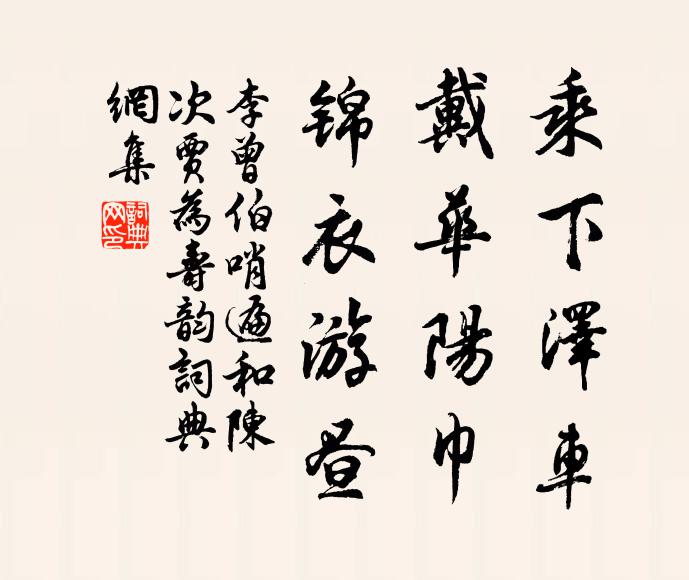 乘下澤車
戴華陽巾
锦衣游昼
李曾伯哨遍和陳
次賈為壽韵詞典
網集
詞典
网印